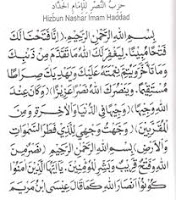 حِزْبُ النَّصْرِ لِلْإِمَامِ الْحَدَّادِ
Hizbun Nashar Imam Haddad
بِسْمِ اللهِ الرَّحْمٰنِ الرَّحِيْمِ. (إِنَّا فَتَحْنَا لَكَ
فَتْحًا مُبِيْنًا. لِيَغْفِرَ لَكَ اللهُ مَا تَقَدَّمَ مِنْ ذَنْبِكَ
وَمَا تَأَخَّرَ وَيُتِمَّ نِعْمَتَهُ عَلَيْكَ وَيَهْدِيَكَ صِرَاطًا
مُسْتَقِيْمًا. وَيَنْصُرَكَ اللهُ نَصْرًا عَزِيْزًا) (وَكَانَ عِنْدَ
اللهِ وَجِيْهًا) (وَجِيْهًا فِي الدُّنْيَا وَالْآخِرَةِ وَمِنَ
الْمُقَرَّبِيْنَ) (وَجَّهْتُ وَجْهِيَ لِلَّذِيْ فَطَرَ السَّمٰوَاتِ
وَالْأَرْضَ) بِسْمِ اللهِ الرَّحْمٰنِ الرَّحِيْمِ (نَصْرٌ مِنَ
اللهِ وَفَتْحٌ قَرِيْبٌ وَبَشِّرِ الْمُؤْمِنِيْنَ. يَاأَيُّهَا الَّذِيْنَ آمَنُوْا
كُوْنُوْا أَنْصَارَ اللهِ كَمَا قَالَ عِيْسَى ابْنُ مَرْيَمَ